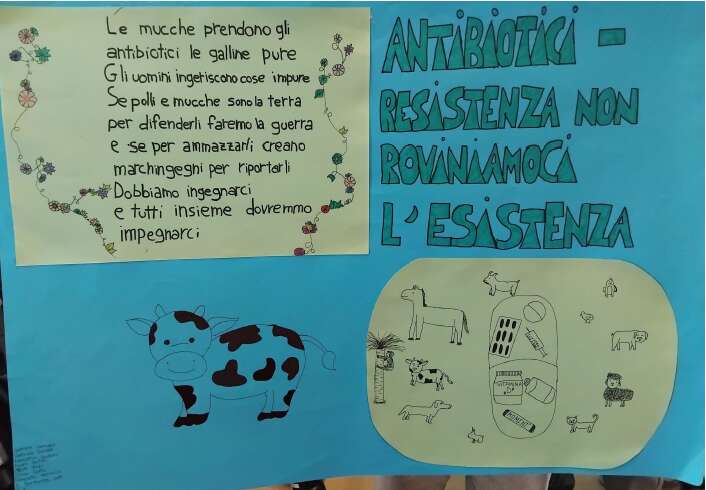 Le mucche prendono gli
antibiotici le galline pure
Gli uomini ingeriscono cose impure
Se polli e mucche sono la terra
per difenderli faremo la guerra
e se per ammazzarli creano
marchingegni per riportarli
Dobbiamo ingegnarci
e tutti insieme dovremmo
impegnarci
ANTIBIOTICI -
RESISTENZA NON
ROVINIAMOCI
L'ESISTENZA
VITAMINA
MOMENT